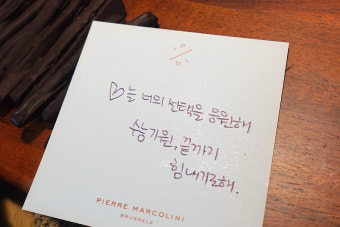 ♡늘 너의 선택을 응원해
승가원, 끝까지
힘내기로해.
PIERRE MARCOLINI
BRUSSELS